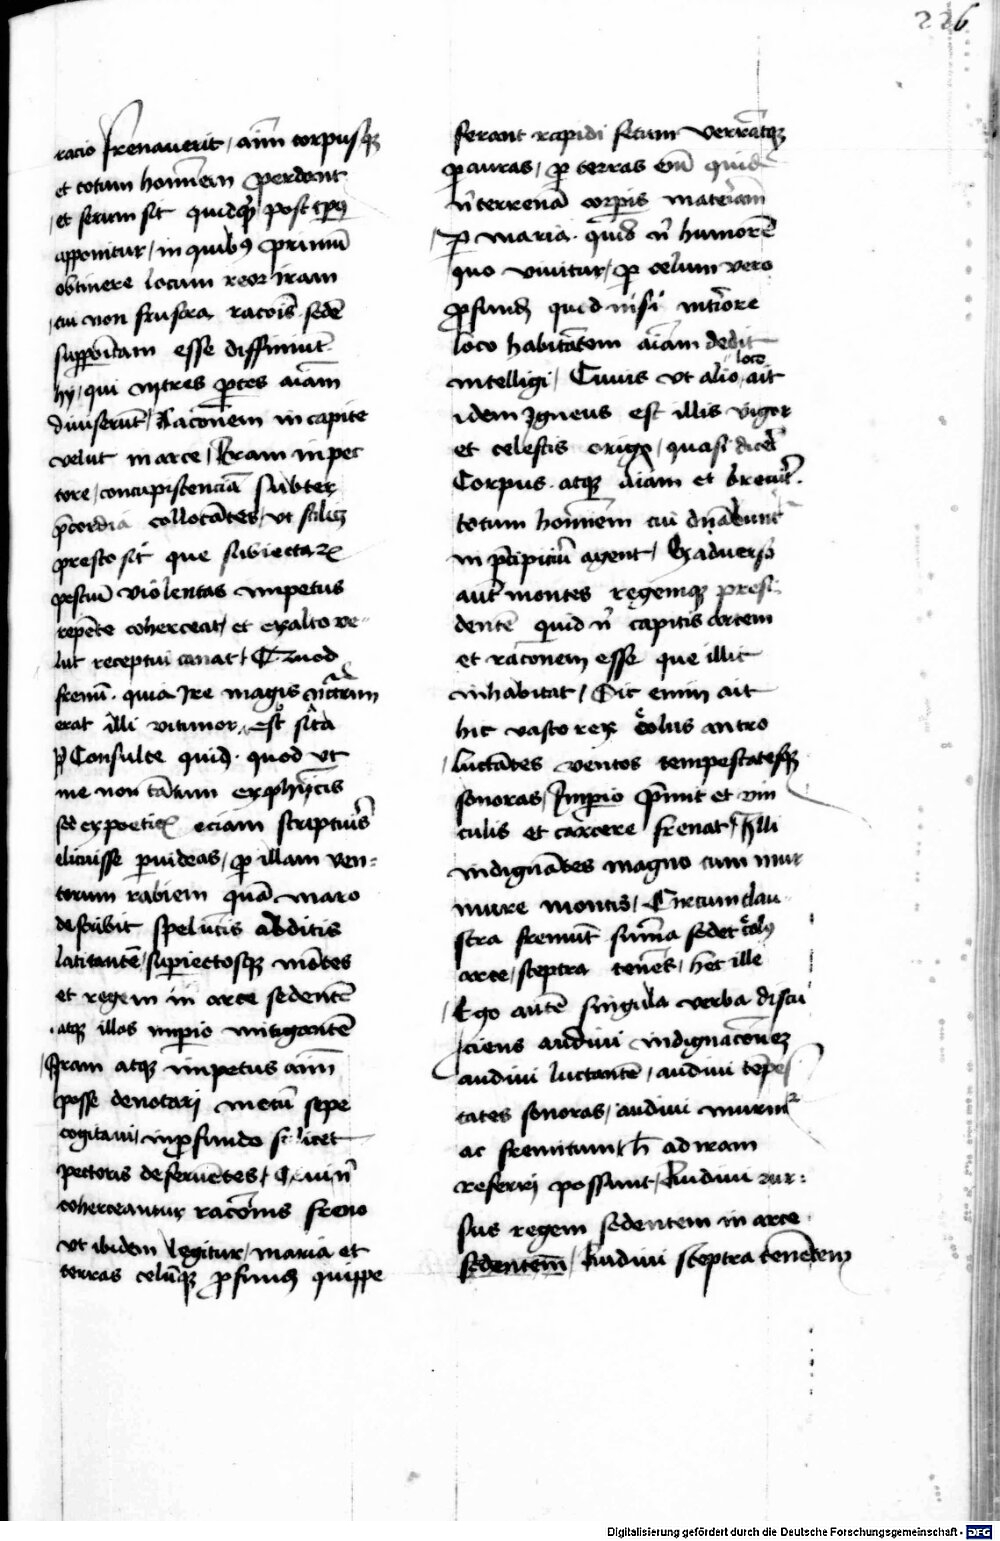 226
racio frenauerit / aīm corpusqꝫ
et totum hominem perdant
/ et serum sit quidqͥd post tp̄us
apponitur / in quibꝰ primū
obtinere locum reor iram
/ cui non frustra racōis sedē
suppoītam esse diffiniūt
hij / qui in tres p̱tes aīam
diuiserūt / Racōnem in capite
velut in arce / Iram in pec
tore / concupiscenciā subter
p̄cordia collocātes / vt scilicꝫ
presto sit que subiectaꝝ
pestiū violentas impetus
repēte coherceat / et ex alto ve-
lut receptui canat / Quod
frenū quia ire magis nc̄rium
erat illi vicinior est sita
Consulte quidē quod vt
me non tātum ex phīcis
sed ex poeticꝭ eciam scripturis
elicuisse peruideas / p̱ illam ven=
torum rabiem quā maro
describit speluncis abditis
latitantē / superiectosqꝫ mōtes
et regem in arce sedentē
atqꝫ illos imp̱io mitigantē
/ Iram atqꝫ impetus aīmi
posse denotari mecū sepe
cogitaui / in p̱fundo scilicet
pectoris deferuētes / Qui nͥ
coherceantur racōnis freno
vt ibidem legitur / maria et
terras celūqꝫ p̱fundū quippe
ferant rapidi secum verrātqꝫ
p̱ auras / p̱ terras eīm quid
nͥ terrenā corp̱is materiam
/ p̱ maria quid nͥ humorē
quo viuitur / p̱ celum vero
p̱fundū quid nisi in tāliore
loco habitātem aīam dedit
intelligi / Cuius vt alio loco ait
idem Igneus est illis vigor
et celestis origo / quasi dicēt
Corpus atqꝫ aīam et breuit̄
totum hominem cui dn̄abunt᷑
in p̄cipiciū agent / Ex aduerso
aut̄ montes regemqꝫ presi-
dentē quid nͥ capitis arcem
et racōnem esse que illic
inhabitat / Sic enim ait
hic vasto rex eolus antro
/ luctātes ventos tempestatesqꝫ
sonoras / Imp̱io p̄mit et vin
culis et carcere frenat / Illi
indignātes magno cum mur
mure montis / Circum clau-
stra fremūt sum̄a sedet eolꝰ
arce / sceptra tenēs / hec ille
/ Ego autē singula verba discu
/ ciens audiui indignacōnez
audiui luctantē / audiui tēpes
tates sonoras / audiui murmꝛ
ac fremitum / h̄ ad iram
referri possunt / Audiui rur=
sus regem sedentem in arce
sedentem̄ / Audiui sceptra tenētem
Digitalisierung gefördert durch die Deutsche Forschungsgemeinschaft - DFG